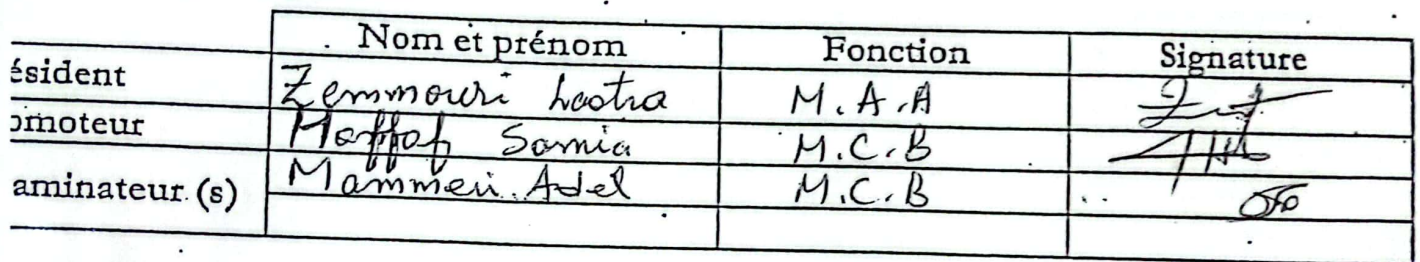 Nom et prénom Fonction Signature
ésident Zemmouri M.A.A
omoteur Haffaf Samia M.C.B
aminateur (s) Mammeri Adel M.C.B